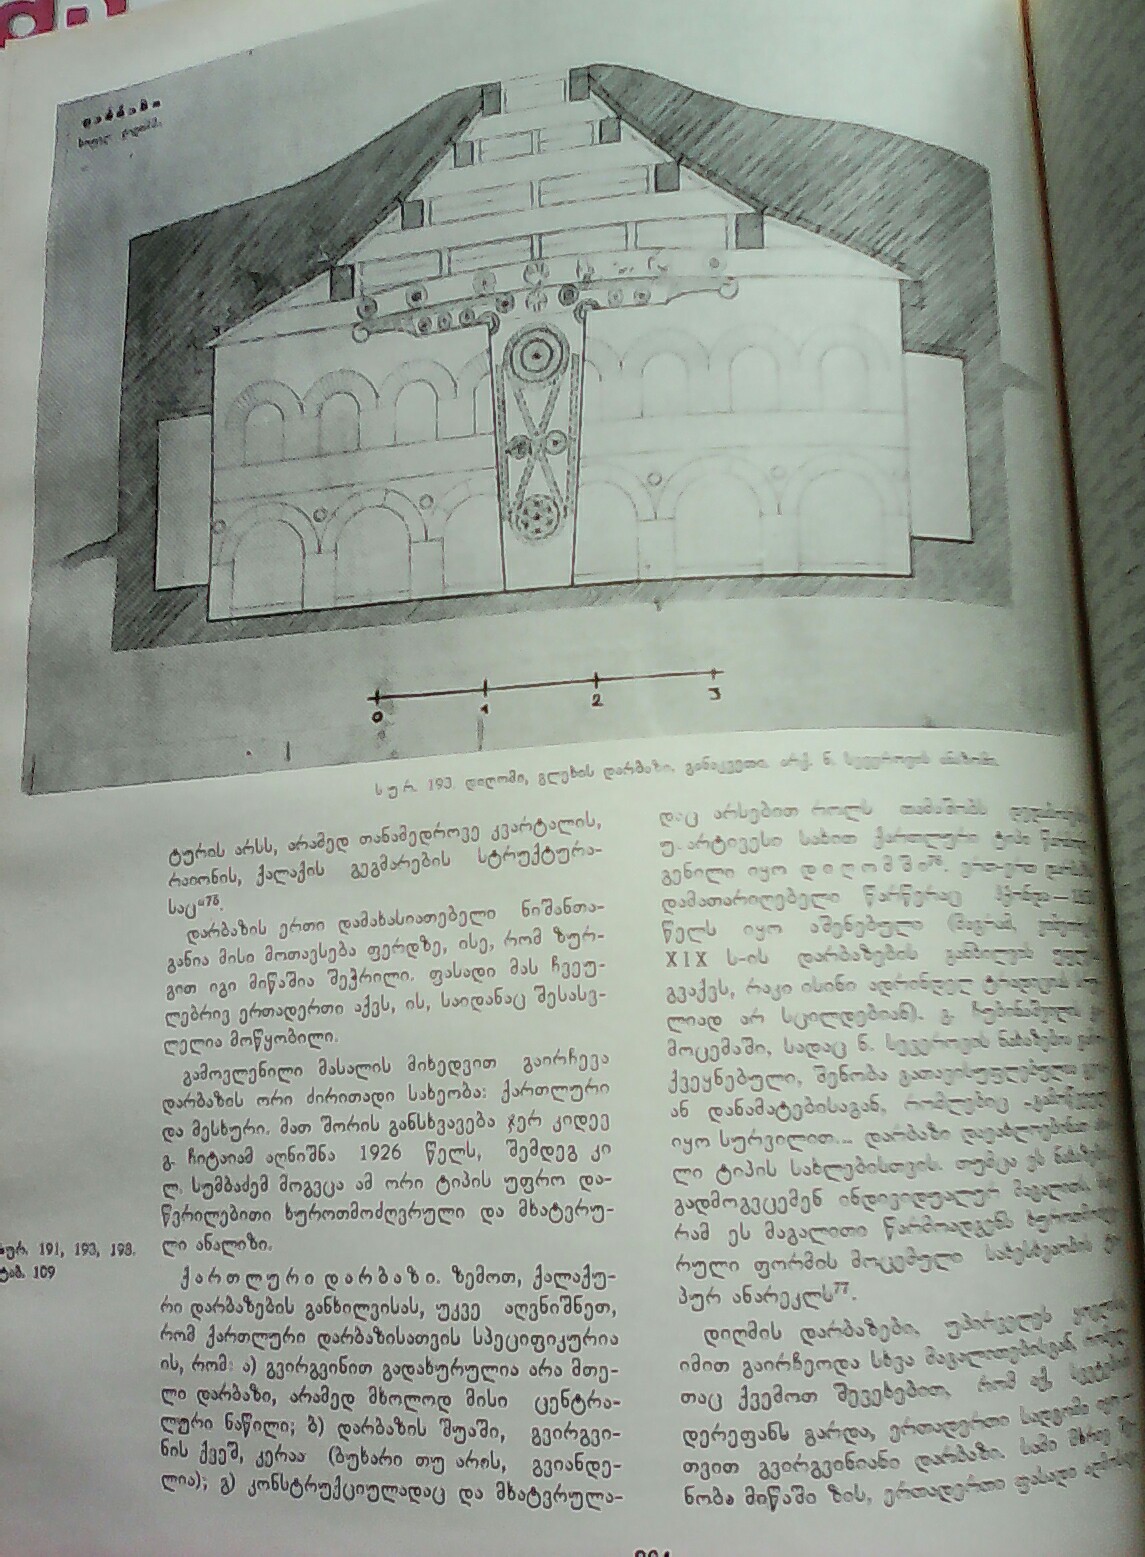 დარბაზი
0 1 2 3
სურ. 193. დიღომი, გლეხის დარბაზი. განაკვეთი. არქ. ნ. სევეროვის ანაზომი.
ტურის არსს, არამედ თანამედროვე კვარტალის,
რაიონის, ქალაქის გეგმარების სტრუქტურა-
საც“⁷⁵.
დარბაზის ერთი დამახასიათებელი ნიშანთა-
განია მისი მოთავსება ფერდზე, ისე, რომ ზურ-
გით იგი მიწაშია შეჭრილი. ფასადი მას ჩვეუ-
ლებრივ ერთადერთი აქვს, ის, საიდანაც შესას-
ვლელია მოწყობილი.
გამოვლენილი მასალის მიხედვით გაირჩევა
დარბაზის ორი ძირითადი სახეობა: ქართლური
და მესხური. მათ შორის განსხვავება ჯერ კიდევ
გ. ჩიტაიამ აღნიშნა 1926 წელს, შემდეგ კი
ლ. სუმბაძემ მოგვცა ამ ორი ტიპის უფრო და-
წვრილებითი ხუროთმოძღვრული და მხატვრუ-
ლი ანალიზი.
სურ. 191, 193, 198.
ტაბ. 109
ქართლური დარბაზი. ზემოთ, ქალაქუ-
რი დარბაზების განხილვისას, უკვე აღვნიშნეთ,
რომ ქართლური დარბაზისათვის სპეციფიკურია
ის, რომ: ა) გვირგვინით გადახურულია არა მთე-
ლი დარბაზი, არამედ მხოლოდ მისი ცენტრა-
ლური ნაწილი; ბ) დარბაზის შუაში, გვირგვი-
ნის ქვეშ, კერაა (ბუხარი თუ არის, გვიანდე-
ლია); გ) კონსტრუქციულადაც და მხატვრულა-
დაც არსებით როლს თამაშობს
უ. არტივესი სახით ქართლური ტიპი
გენილი იყო დიღომში⁷⁶. ერთ-ერთ
დამათარიღებელი წარწერაც ჰქონდა —
წელს იყო აშენებული (მაგრამ,
XIX ს-ის დარბაზების განხილვის
გვაქვს, რაკი ისინი ადრინდელ ტრადიციას
ლიად არ სცილდებიან). გ. ჩუბინაშვილის
მოცემაში, სადაც ნ. სევეროვის ნახაზებია
ქვეყნებული, შენობა გათავისუფლებულია
ან დანამატებისაგან, რომლებიც
იყო სურვილით... დარბაზი დაეახლოებინათ
ლი ტიპის სახლებისთვის. თუმცა ეს
გადმოგვცემენ ინდივიდუალურ მაგალითს,
რამ ეს მაგალითი წარმოადგენს
რული ფორმის მოცემული სახესხვაობის
პურ ანარეკლს⁷⁷.
დიღმის დარბაზები, უპირველეს ყოვლისა,
იმით გაირჩეოდა სხვა მაგალითებისგან,
თაც ქვემოთ შევეხებით, რომ აქ,
დერეფანს გარდა, ერთადერთი სადგომი
თვით გვირგვინიანი დარბაზი. სამი მხრივ
ნობა მიწაში ზის, ერთადერთი ფასადი